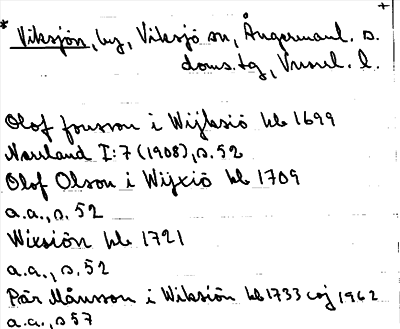 * Viksjön, by, Viksjö sn, Ångermanl. s.
doms.tg, Vnorrl. l.
Olof Jonsson i Wijksiö kb 1699
Norrland I:7 (1908), s. 52
Olof Olson i Wijxiö kb 1709
a.a., s. 52
Wixsiön kb 1721
a.a., s. 52
Pär Månsson i Wiksiön kb 1733 coj 1962
a.a., s 57